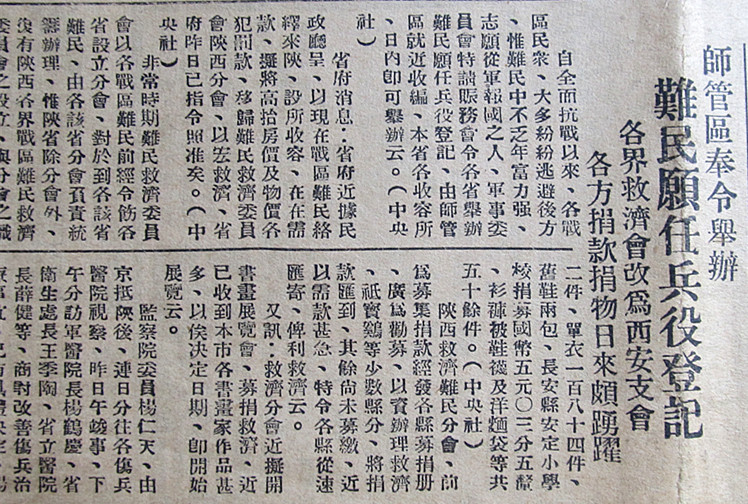 師管區奉令舉辦
難民願任兵役登記
各界救濟會改爲西安支會
各方捐款捐物日來頗踴躍
自全面抗戰以來、各戰
區民衆、大多紛紛逃避後方
、惟難民中不乏年富力强、
志願從軍報國之人、軍事委
員會特請賑務會令各省舉辦
難民願任兵役登記、由師管
區就近收編、本省各收容所
、日內卽可舉辦云。（中央
社）
省府消息：省府近據民
政廳呈、以現在戰區難民絡
繹來陝、設所收容、在在需
款、擬將高抬房價及物價各
犯罰款、移歸難民救濟委員
會陝西分會、以宏救濟、省
府昨日已指令照准矣。（中
央社）
非常時期難民救濟委員
會以各戰區難民前經令飭各
省設立分會、對於到各該省
難民、由各該省分會負責統
籌辦理、惟陝省除分會外、
沒有陝西各界戰區難民救濟
委員會之設立、與分會之職
二件、單衣一百八十四件、
舊鞋兩包、長安縣安定小學
校捐募國幣五元〇三分五釐
、衫褲被鞋襪及洋麵袋等共
五十餘件。（中央社）
陝西救濟難民分會、前
爲募集捐款經發各縣募捐册
、廣爲勸募、以資辦理救濟
、祇寶鷄等少數縣分、將捐
款匯到、其餘尙未募繳、近
以需款甚急、特令各縣從速
匯寄、俾利救濟云。
又訊：救濟分會近擬開
書畫展覽會、募捐救濟、近
已收到本市各書畫家作品甚
多、以俟决定日期、卽開始
展覽云。
監察院委員楊仁天、由
京抵陝後、連日分往各傷兵
醫院視察、昨日午峻事、下
午分訪軍醫院長楊鶴慶、省
衞生處長王季陶、省立醫院
長薛健等、商討改善傷兵治